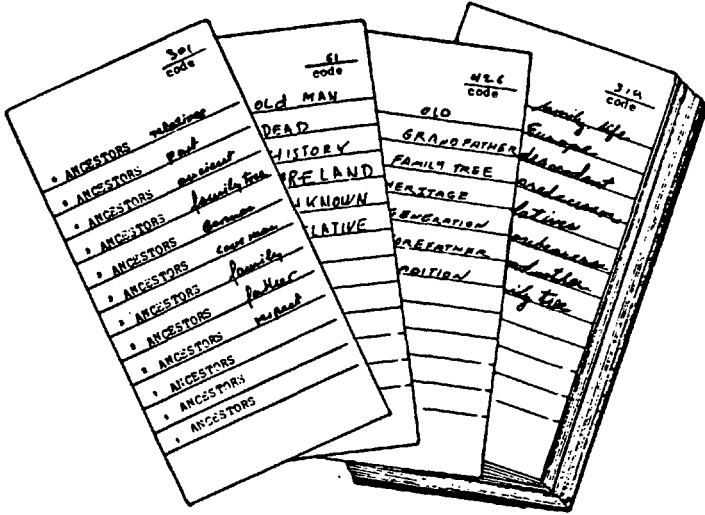 301
code
• ANCESTORS relatives
• ANCESTORS past
• ANCESTORS ancient
• ANCESTORS family tree
• ANCESTORS
• ANCESTORS cave man
• ANCESTORS family
• ANCESTORS father
• ANCESTORS respect
• ANCESTORS
• ANCESTORS
• ANCESTORS
61
code
OLD MAN
DEAD
HISTORY
RELAND
KNOWN
LATIVE
426
code
OLD
GRANDFATHER
FAMILY TREE
HERITAGE
GENERATION
OREFATHER
DITION
code
family life
Europe
descendant
predecessors
latives
ily tree